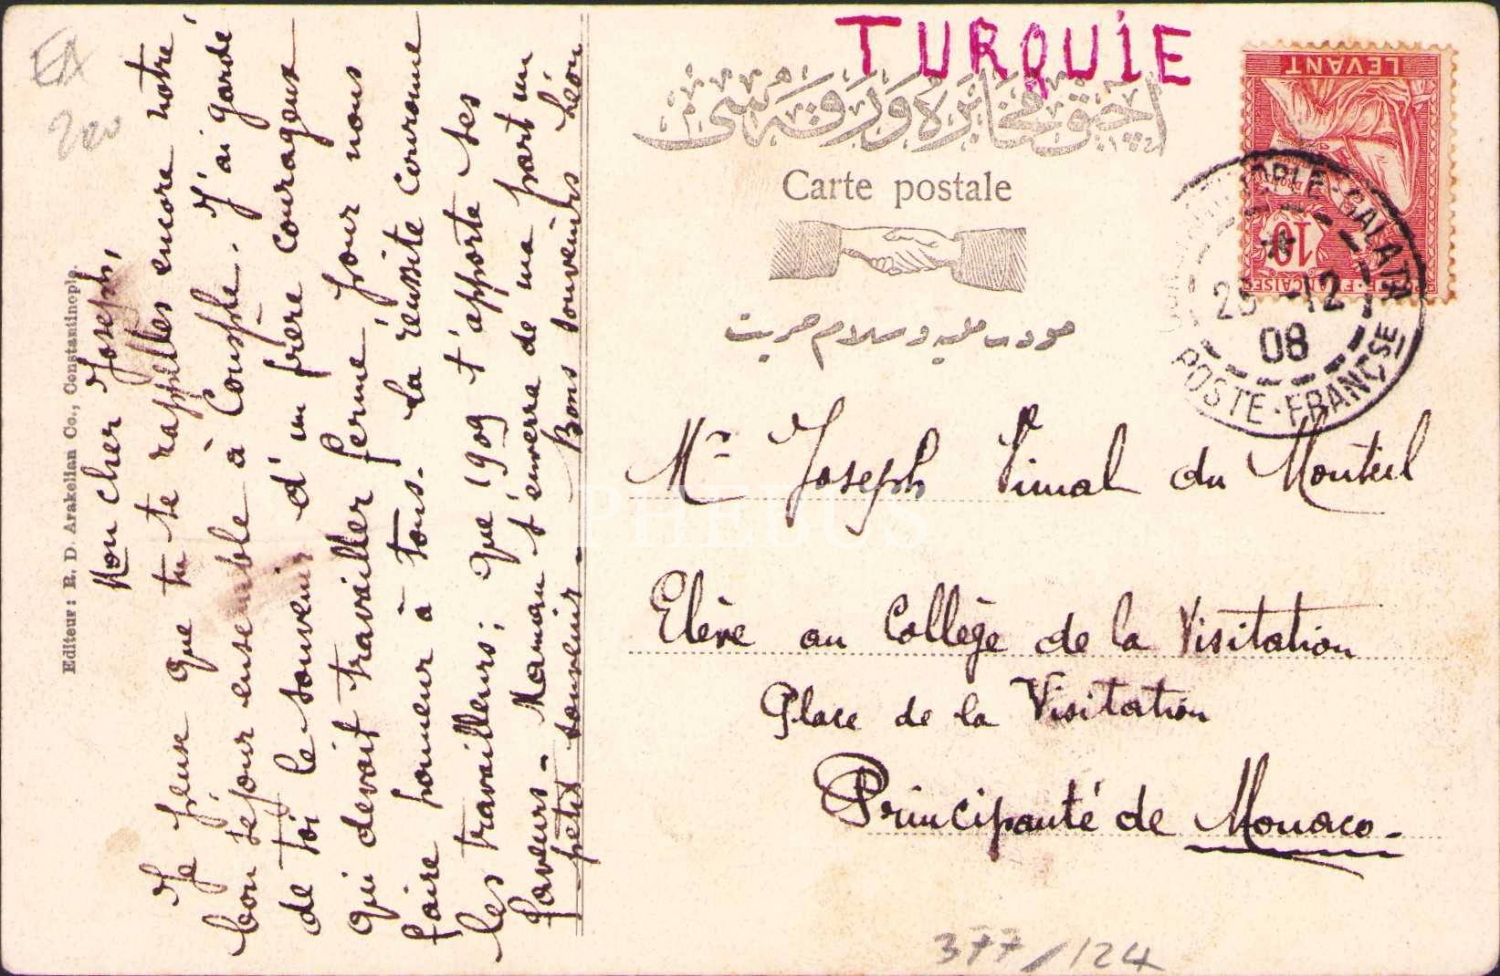 TURQUIE
EA
200
آچيق مخابره ورقه سى
Carte postale
LEVANT
10
CONSTANTINOPLE-GALATA
25 -12
08
POSTE-FRANÇSE
Editeur: R. D. Arakelian Co., Constantinople.
Mon cher Joseph,
Je pense que tu te rappelles encore notre
bon séjour ensemble à Consple. J'ai gardé
de toi le souvenir d'un frère courageux
qui devait travailler ferme pour nous
faire honneur à tous. La réussite couronne
les travailleurs; que 1909 t'apporte ses
faveurs - Maman t'enverra de ma part un
petit souvenir - Bons souvenirs Léon
Mr Joseph Vimal du Monteil
Elève au Collège de la Visitation
Place de la Visitation
Principauté de Monaco-
377/124
PHEBUS